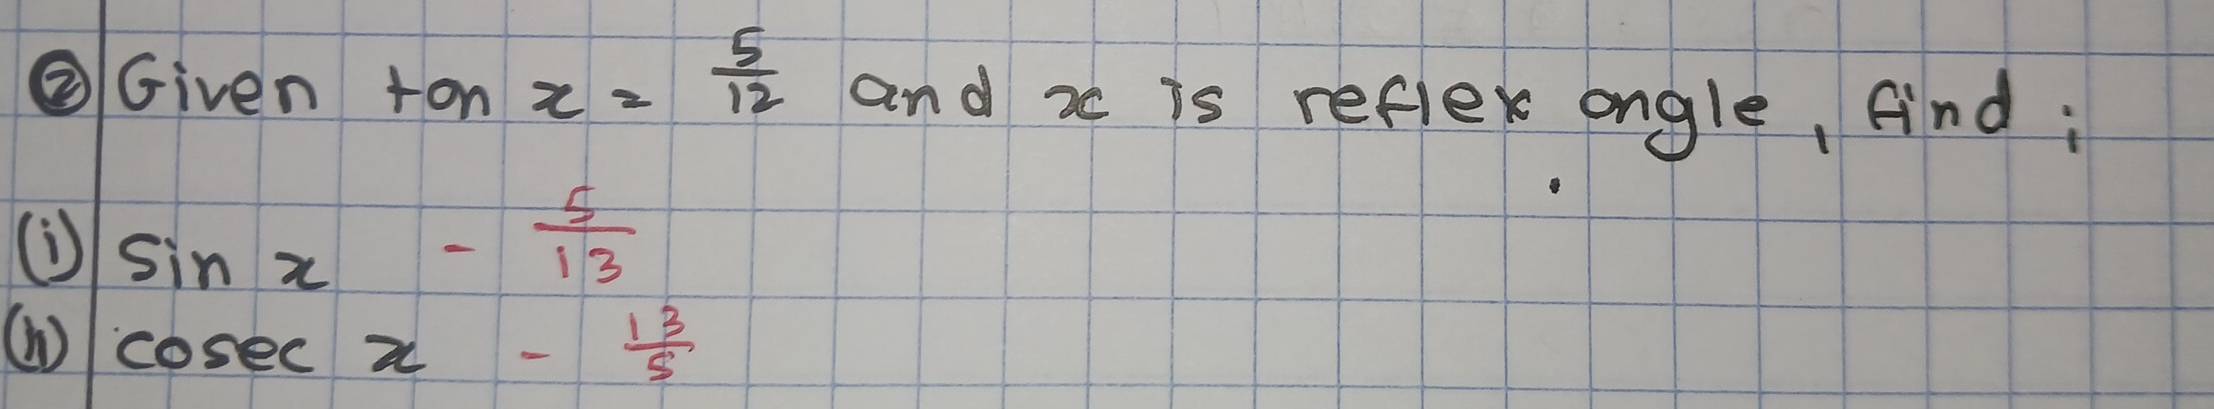 ② Given tan x = 5/12 and x is reflex angle, find;
(i) sin x - 5/13
(ii) cosec x - 13/5